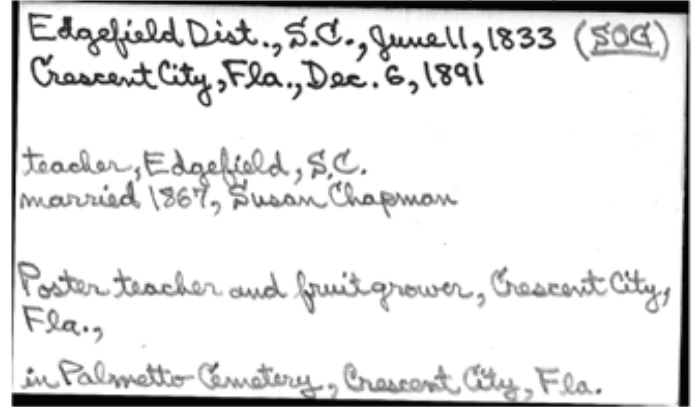 Edgefield Dist., S.C., June 11, 1833 (SOG)
Crescent City, Fla., Dec. 6, 1891
teacher, Edgefield, S.C.
married 1867, Susan Chapman
Poster teacher and fruit grower, Crescent City,
Fla.,
in Palmetto Cemetery, Crescent City, Fla.